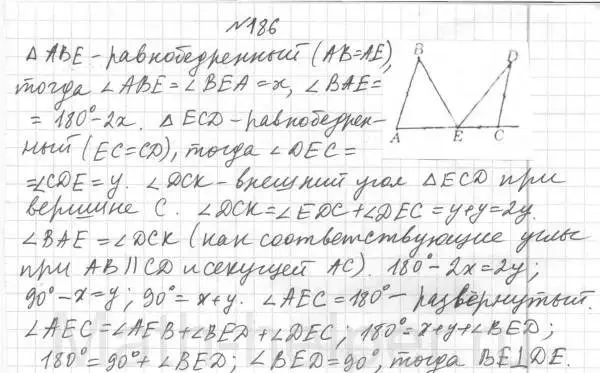 №186
△ABE - равнобедренный (AB=AE),
тогда ∠ABE = ∠BEA = x, ∠BAE =
= 180° - 2x. △ECD - равнобедрен-
ный (EC=CD), тогда ∠DEC =
= ∠CDE = y. ∠DCK - внешний угол △ECD при
вершине C. ∠DCK = ∠EDC + ∠DEC = y + y = 2y.
∠BAE = ∠DCK (как соответствующие углы
при AB || CD и секущей AC). 180° - 2x = 2y;
90° - x = y; 90° = x + y. ∠AEC = 180° - развернутый.
∠AEC = ∠AEB + ∠BED + ∠DEC; 180° = x + y + ∠BED;
180° = 90° + ∠BED; ∠BED = 90°, тогда BE ⊥ DE.
B
D
A
E
C